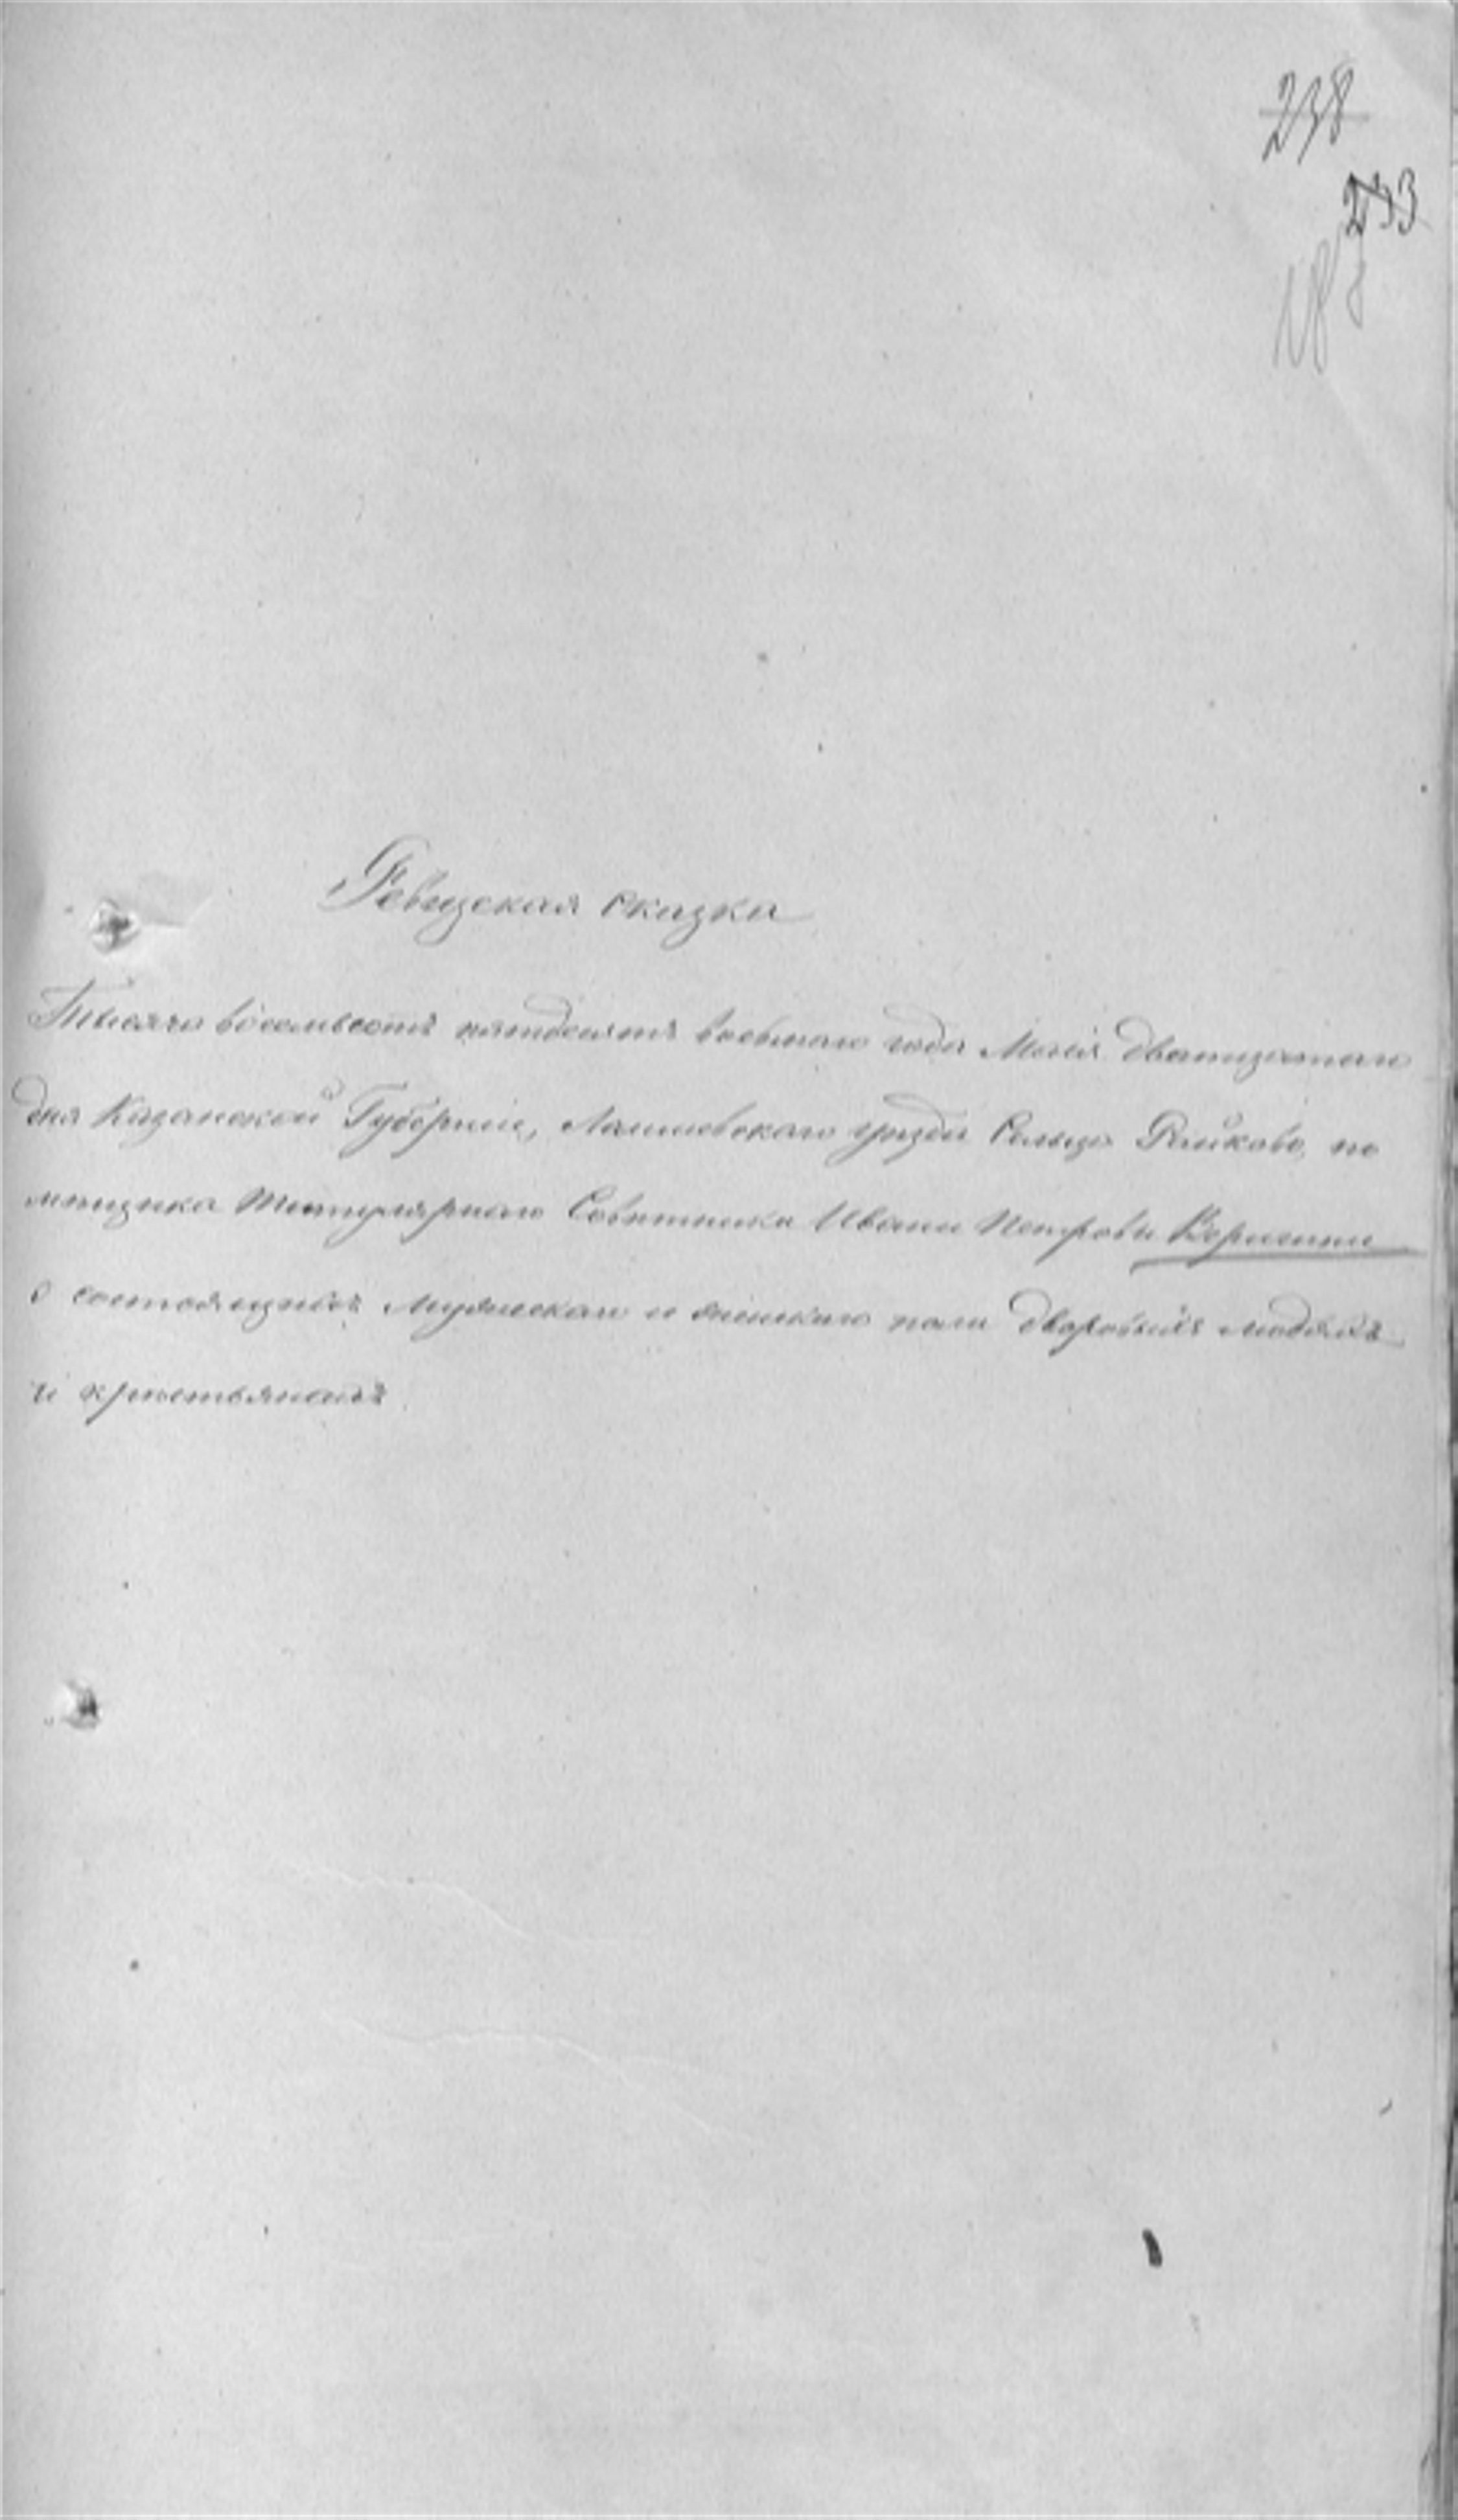 238
233
187
Ревизская сказка
Тысяча восемьсотъ пятдесятъ восьмаго года Маія дватцатаго
дня Казанской Губерніи, Лаишевскаго уезда Сельца Райкова, по
мещика Титулярнаго Советника Ивана Петрова Веригина
о состоящихъ мужескаго и женскаго пола дворовыхъ людяхъ
и крестьянахъ